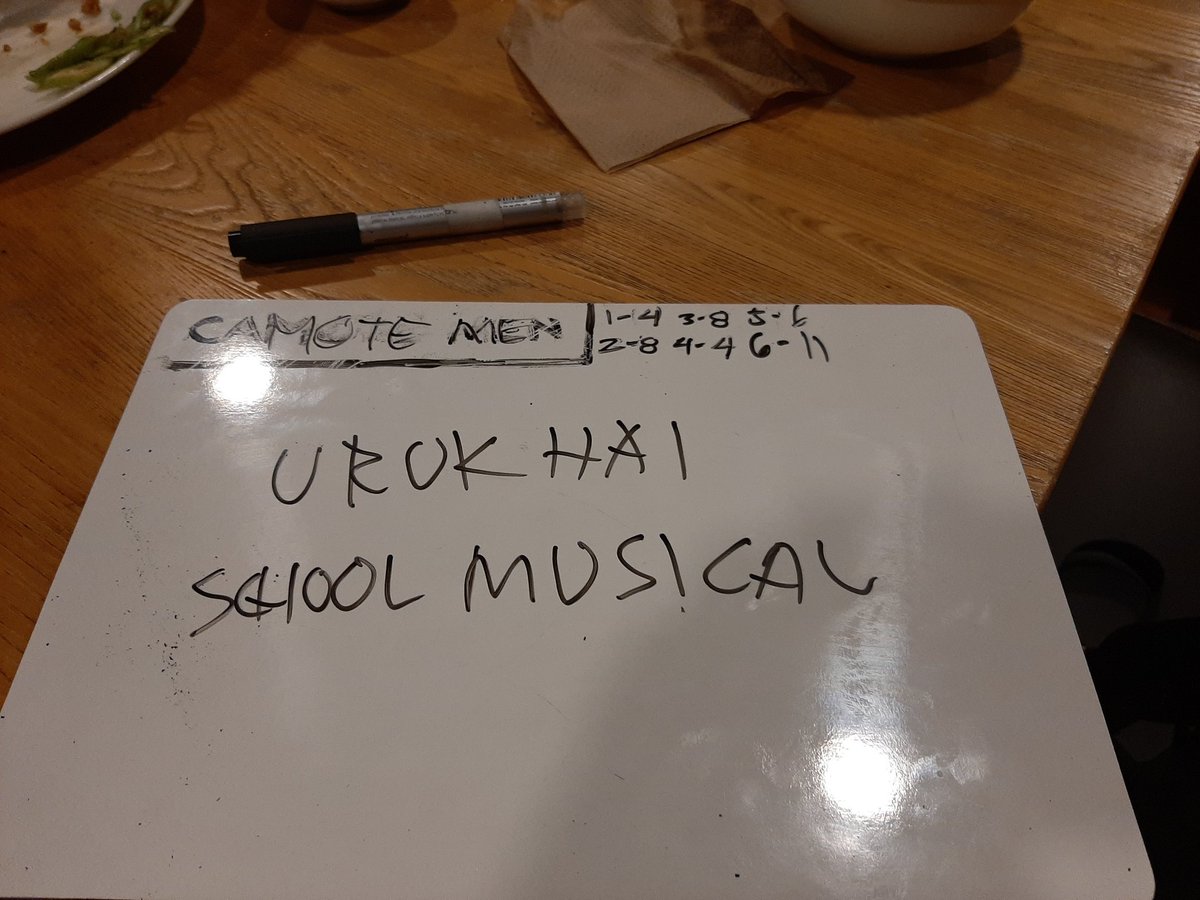 CAMOTE MEN
1-4 3-8 5-6
2-8 4-4 6-11
URUK HAI
SCHOOL MUSICAL